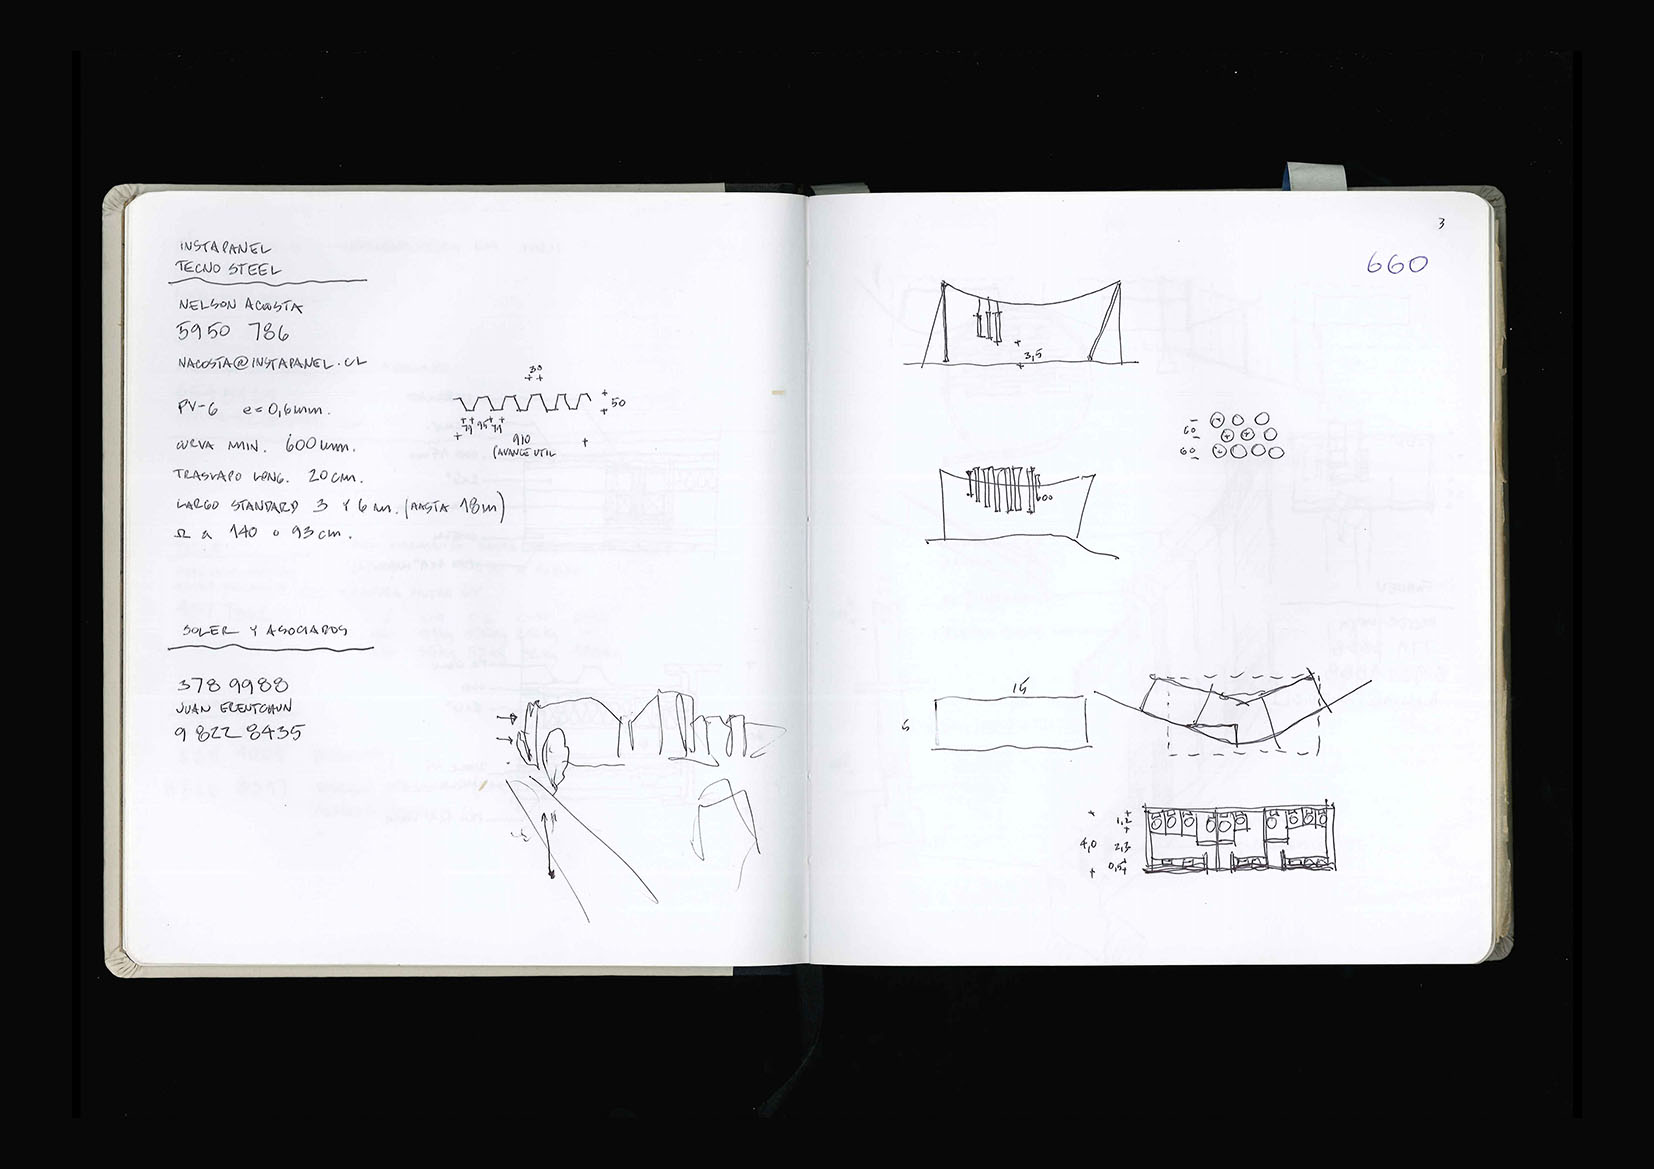 INSTAPANEL
TECNO STEEL
NELSON ACOSTA
5950 786
NACOSTA@INSTAPANEL.CL
PV-6 e=0,6mm.
CURVA MIN. 600mm.
TRASLAPO LONG. 20cm.
LARGO STANDARD 3 Y 6 m. (HASTA 18m)
Ω a 140 o 93cm.
30
50
79 95 79
910
(AVANCE UTIL
SOLER Y ASOCIADOS
378 9988
JUAN
9 822 8435
3
660
3,5
60
60
15
1,2
4,0 2,3
0,5